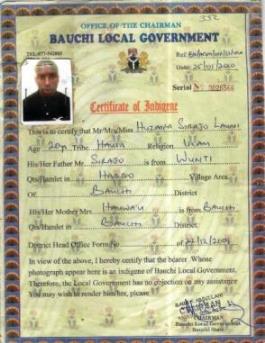 352
OFFICE OF THE CHAIRMAN
BAUCHI LOCAL GOVERNMENT
Date: 25/01/2010
Serial
Certificate of Indigene
This is to certify that Mr/Mrs/Miss Huzaifa Sirajo Lawal
Age 20yrs Tribe Hausa Religion Islam
His/Her Father Mr. Sirajo is from Wunti
Qts/Hamlet in Hardo Village Area
Of Bauchi District
His/Her Mother Mrs. Hauwa'u is from Bauchi
Qts/Hamlet in Bauchi District
District Head Office Form No of
In view of the above, I hereby certify that the bearer. Whose
photograph appear here is an indigene of Bauchi Local Government.
Therefore, the Local Government has no objection on any assistance
You may wish to render him/her, please.
CHAIRMAN
CHAIRMAN
Bauchi Local Government
Bauchi State